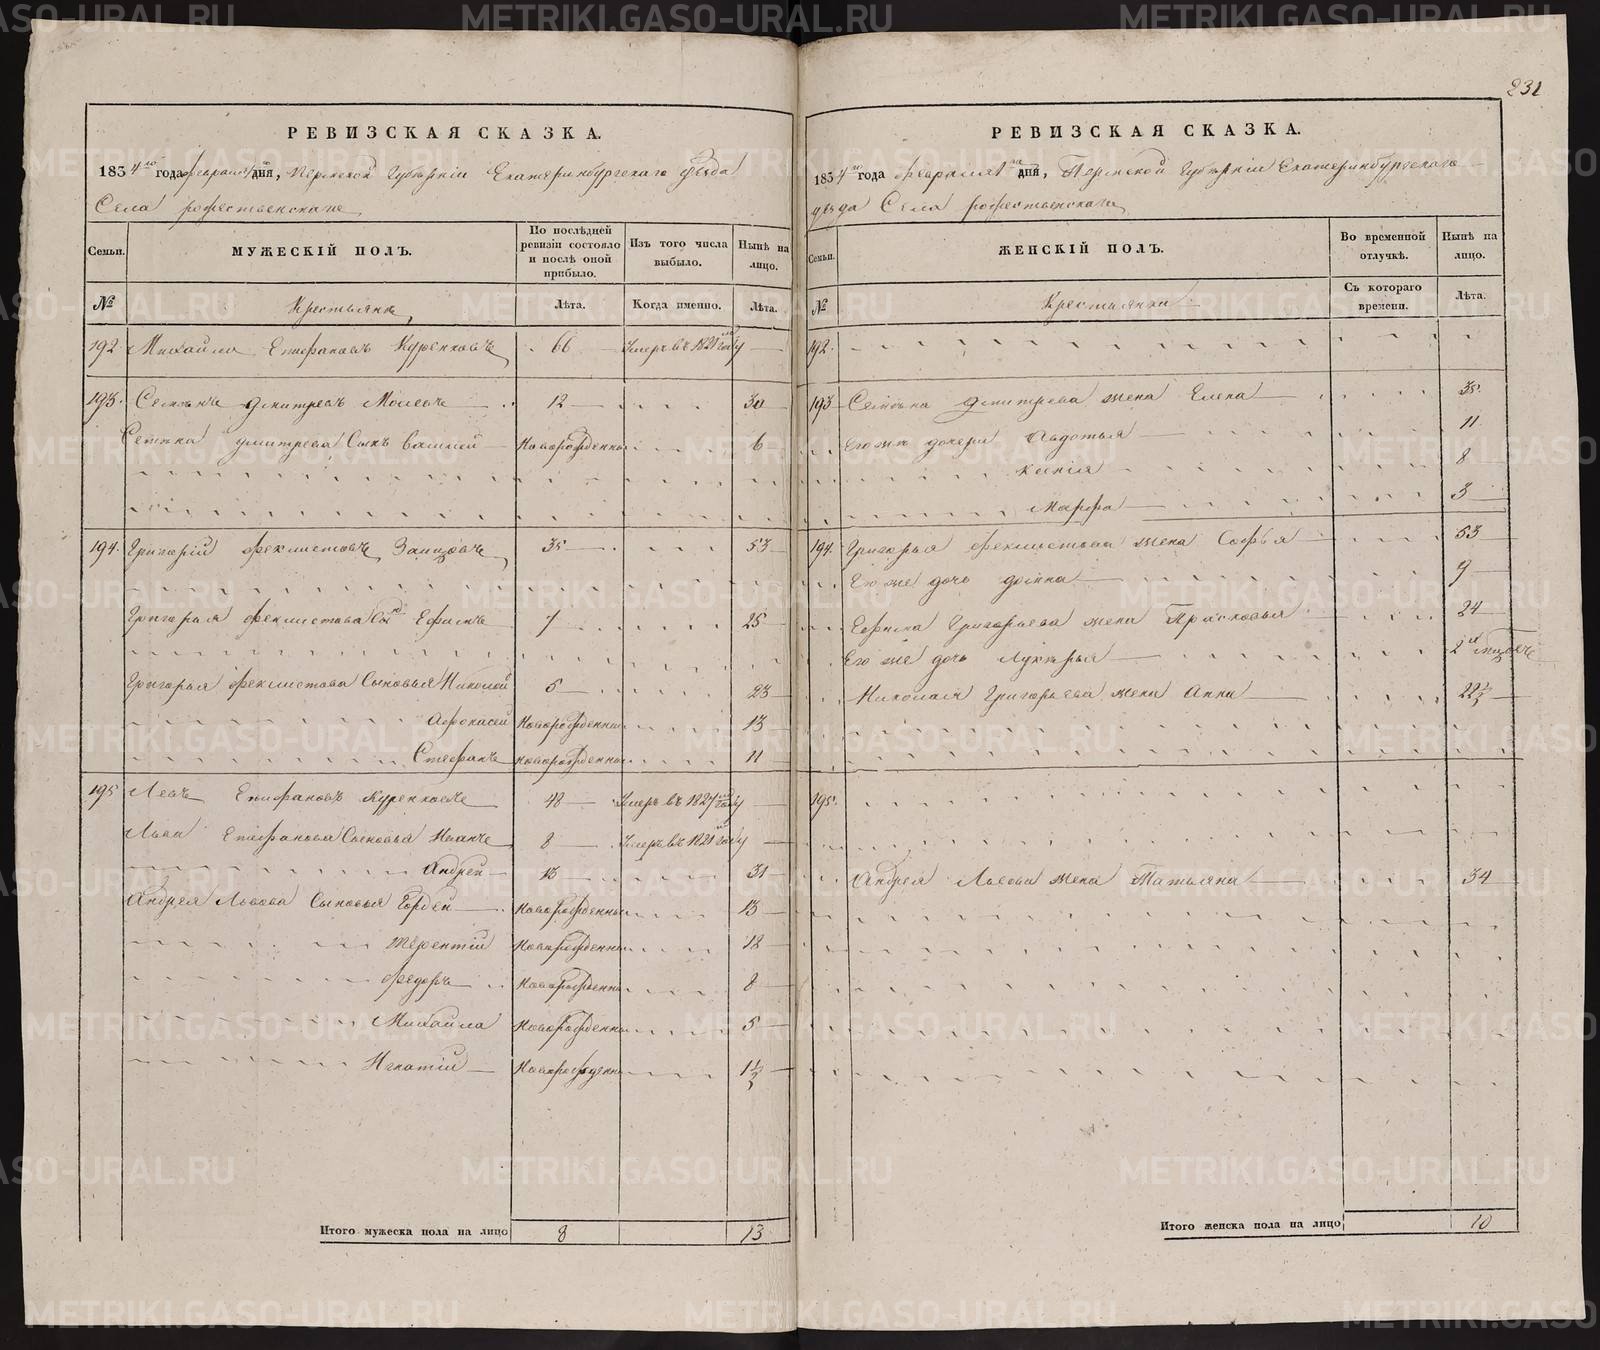 231
РЕВИЗСКАЯ СКАЗКА.
1834го года февраля 1го дня, Пермской Губерніи Екатеринбургскаго уѣзда
Села рожественскаго
Семьи. МУЖЕСКІЙ ПОЛЪ. По послѣдней ревизіи состояло и послѣ оной прибыло. Изъ того числа выбыло. Нынѣ на лицо.
№ Крестьянъ Лѣта. Когда именно. Лѣта.
192 Михайло Епифановъ Куренковъ 66 Умеръ въ 1821м году
193. Семенъ дмитревъ 12 30
дмитрева Сынъ Василий Новорожденны 6
194. Григорій феклистовъ Зайцовъ 35 53
Григорья феклистова Сын Ефимъ 7 25
Григорья феклистова Сыновья Николай 5 23
Афонасей Новорожденны 13
Стефанъ новорожденны 11
195 Левъ Епифановъ Куренковъ 48 Умеръ въ 1827м году
Льва Епифанова Сыновья Иванъ 8 Умеръ въ 1821м году
Андрей 13 31
Андрея Львова Сыновья Гордей Новорожденны 13
Терентій Новорожденны 12
Федоръ Новорожденны 8
Михайла Новорожденны 5
Игнатій Новорожденны 1½
Итого мужеска пола на лицо 8 13
РЕВИЗСКАЯ СКАЗКА.
1834го года февраля 1го дня, Пермской Губерніи Екатеринбургскаго
уѣзда Села рожественскаго
Семьи. ЖЕНСКІЙ ПОЛЪ. Во временной отлучкѣ. Нынѣ на лицо.
№ Крестьянки Съ котораго времени. Лѣта.
192.
193 дмитрева жена Елена 35
Его жъ дочери Авдотья 11
Ксенія 8
Марфа 3
194. Григорья феклистова жена Софья 53
Его же дочь домна 9
Ефима Григорьева жена Прасковья 24
Его же дочь Лукерья
Николая Григорьева жена Анна 22½
195.
Андрея Львова жена Татьяна 34
Итого женска пола на лицо 10
METRIKI.GASO-URAL.RU